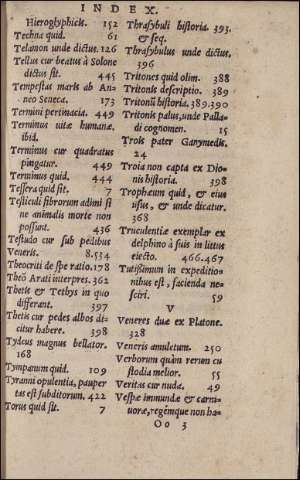 INDEX.
Hieroglyphicis. 152
Techna quid. 61
Telamon unde dictus. 126
Tellus cur beatus à Solone
dictus sit. 445
Tempestas maris ab An-
neo Seneca. 173
Termini pertinacia. 449
Terminus uitæ humanæ.
ibid.
Terminus cur quadratus
pingatur. 449
Terminus quid. 444
Tessera quid sit. 7
Testiculi fibrorum adimi si
ne animalis morte non
possunt. 436
Testudo cur sub pedibus
Veneris. 8.534
Theocriti de spe ratio. 178
Theō Arati interpres. 362
Thetis & Tethys in quo
differant. 397
Thetis cur pedes albos di-
citur habere. 398
Tydeus magnus bellator.
168
Tympanum quid. 109
Tyranni opulentia, pauper
tas est subditorum. 422
Torus quid sit. 7
Thrasybuli historia. 393.
& seq.
Thrasybulus unde dictus.
396
Tritones quid olim. 388
Tritonis descriptio. 389
Tritonū historia. 389.390
Tritonis palus, unde Palla-
di cognomen. 15
Trois pater Ganymedis.
24
Troia non capta ex Dio-
nis historia. 398
Trophæum quid, & eius
usus, & unde dicatur.
368
Truculentiæ exemplar ex
delphino à suis in littus
eiecto. 466.467
Tutissimum in expeditio-
nibus est, facienda ne-
sciri. 59
V
Veneres duæ ex Platone.
328
Veneris amuletum. 250
Verborum quàm rerum cu
stodia melior. 55
Veritas cur nuda. 49
Vespæ immundæ & carni-
uoræ, regémque non ha-
Oo 3